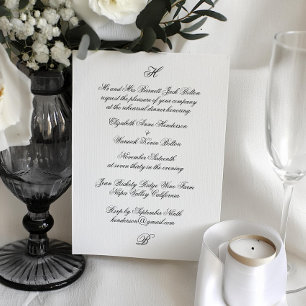 H
Mr and Mrs Bennett Jack Bolton
request the pleasure of your company
at the rehearsal dinner honouring
Elizabeth Anne Henderson
&
Warwick Kevin Bolton
November Sixteenth
at seven thirty in the evening
Jean Rickety Ridge Wine Farm
Napa Valley California
Rsvp by September Ninth
henderson@gmail.com
B